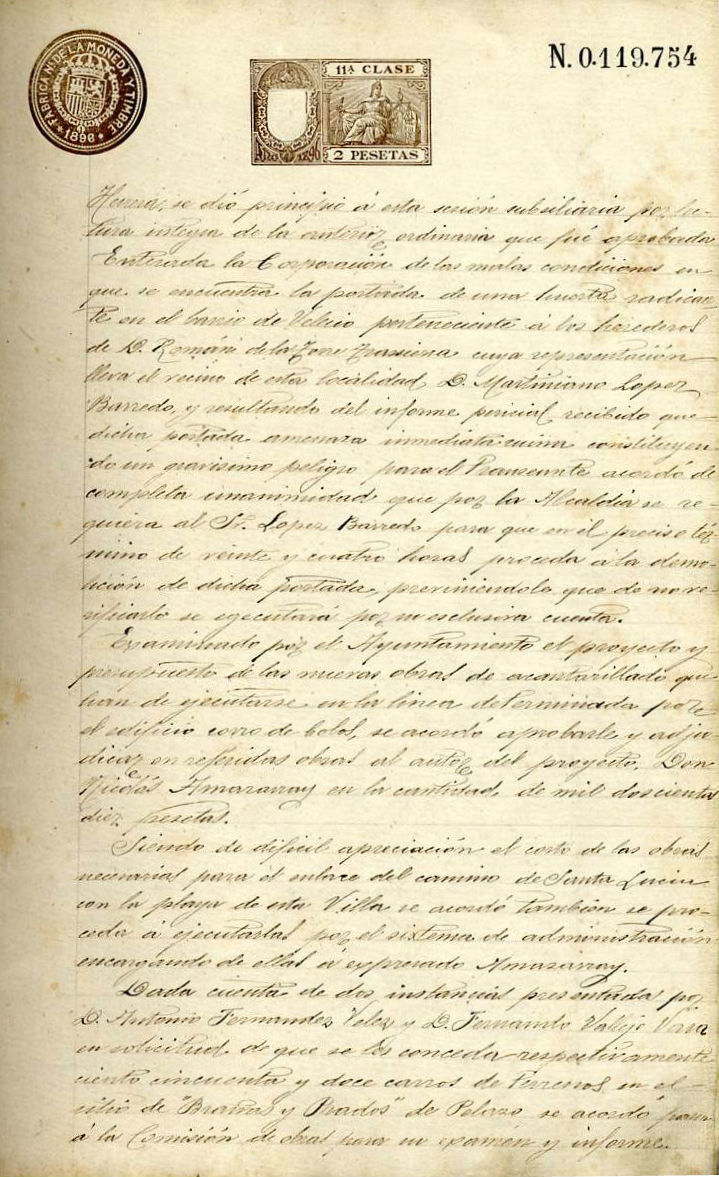 FABRICA N. DE LA MONEDA Y TIMBRE
* 1896 *
11ª CLASE
AÑO 1896
2 PESETAS
N. 0.119.754
se dió principio á esta sesión subsidiaria por lec-
tura integra de la anterior ordinaria que fué aprobada
Enterada la Corporación de las malas condiciones en
que se encuentra la portada de una huerta radican
te en el barrio de Velecio perteneciente á los herederos
de D. Román de la Torre cuya representación
lleva el vecino de esta localidad D. Martiniano Lopez
Barredo, y resultando del informe pericial recibido que
dicha portada amenaza inmediata ruina constituyen-
do un gravisimo peligro para el Transeunte acordó de
completa unanimidad que por la Alcaldia se re-
quiera al Sr. Lopez Barredo para que en el preciso tér-
mino de veinte y cuatro horas proceda á la demo-
lición de dicha portada, previniéndole que de no ve-
rificarlo se egecutará por su esclusiva cuenta.
Examinado por el Ayuntamiento el proyecto y
presupuesto de las nuevas obras de acantarillado que
han de ejecutarse en la linea determinada por
el edificio corro de bolos, se acordó aprobarle y adju-
dicar en referidas obras al autor del proyecto, Don
Nicolás Amazarray en la cantidad, de mil doscientas
diez pesetas.
Siendo de dificil apreciación el costo de las obras
necesarias para el enlace del camino de Santa Lucia
con la playa de esta Villa se acordó también se pro-
ceda á ejecutarlas por el sistema de administración
encargando de ellas á expresado Amazarray.
Dada cuenta de dos instancias presentadas por
D. Antonio Fernandez Velez y D. Fernando Vallejo Vara
en solicitud de que se les conceda respectivamente
ciento cincuenta y doce carros de terrenos en el
sitio de "Brañas y Prados" de se acordó pasar
á la Comisión de obras para su examen y informe.